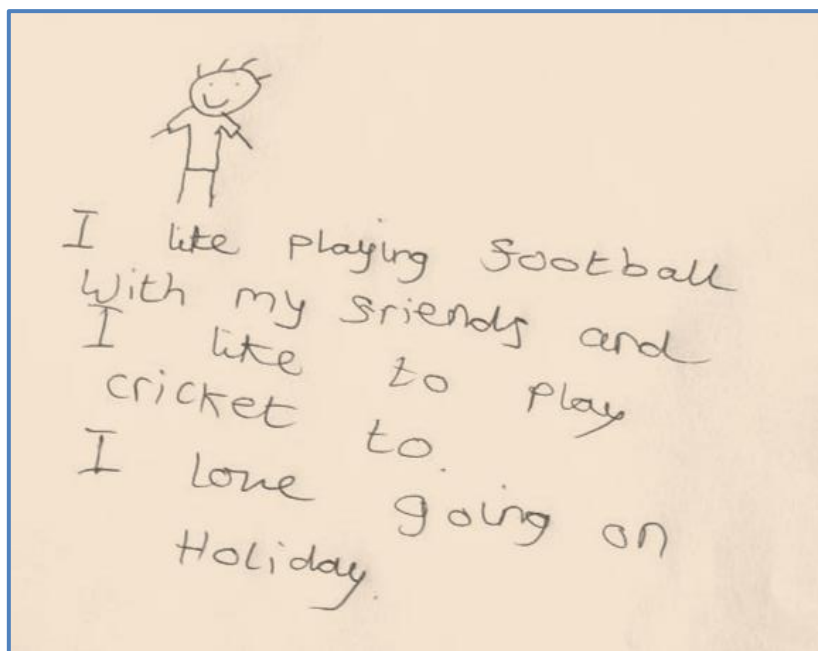 I like playing football
With my friends and
I like to play
cricket to.
I love going on
Holiday.